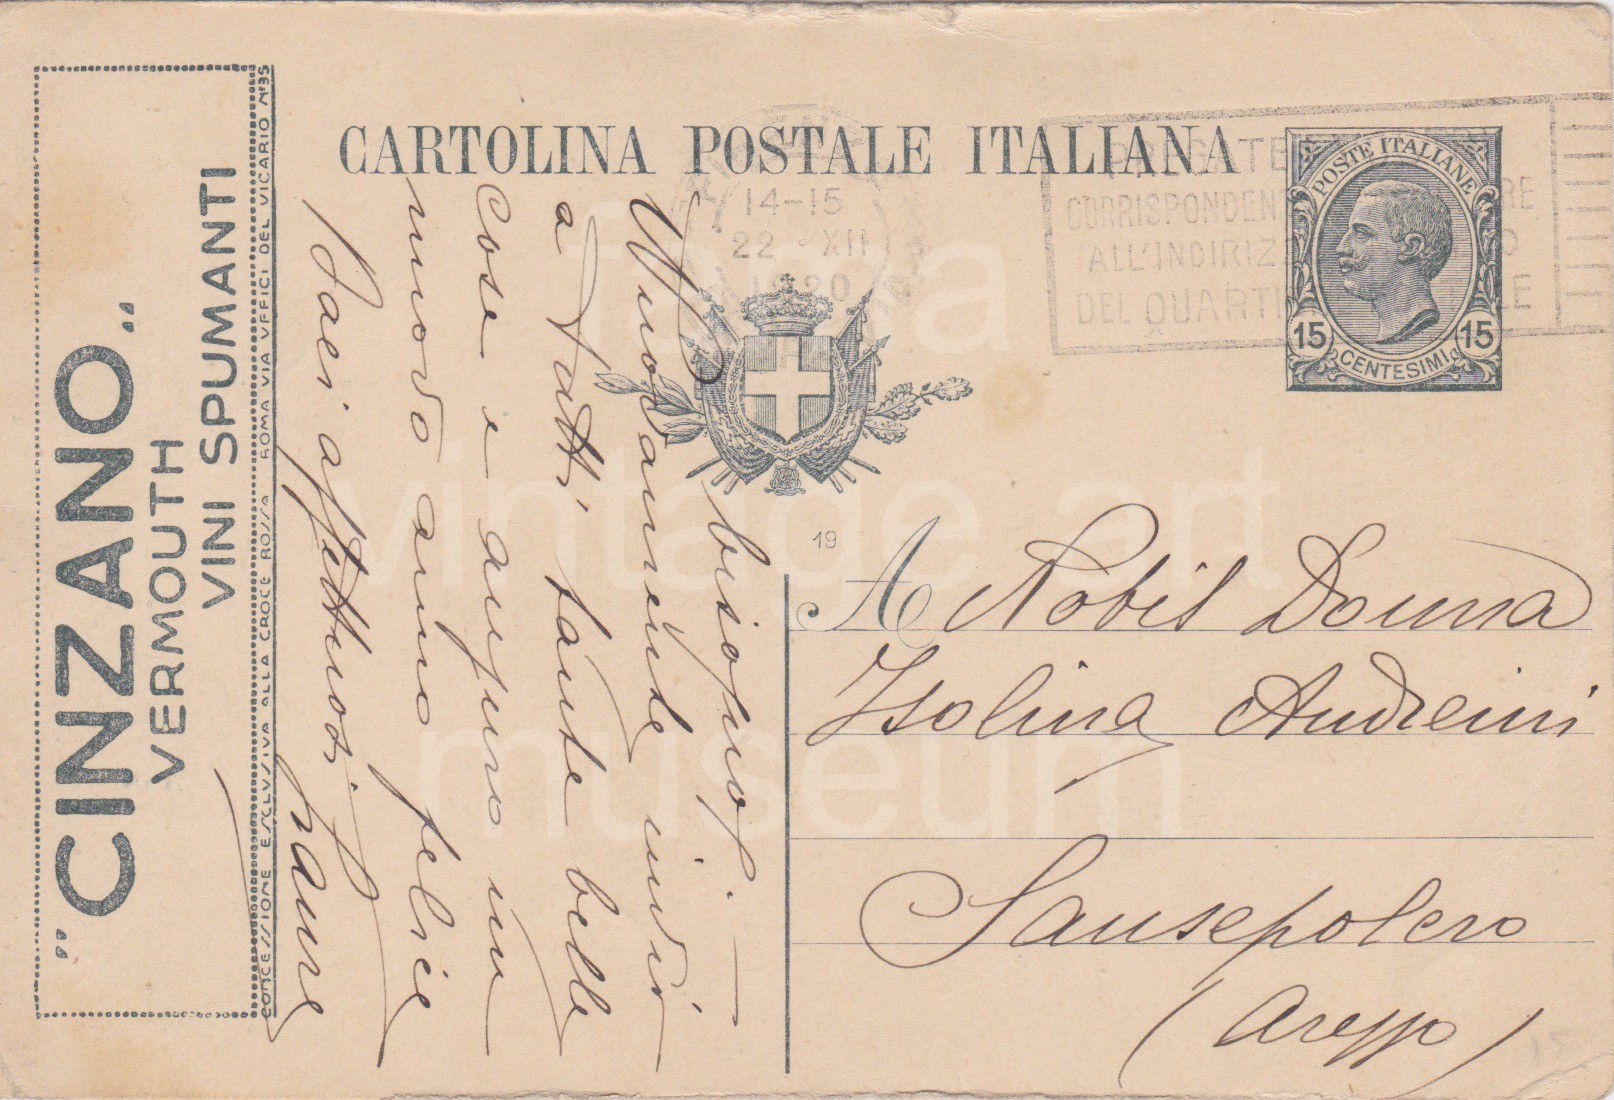 "CINZANO"
VERMOUTH
VINI SPUMANTI
CONCESSIONE ESCLUSIVA ALLA CROCE ROSSA ROMA VIA UFFICI DEL VICARIO N°35
CARTOLINA POSTALE ITALIANA
14-15
22 XII
1920
CORRISPONDEN RE
ALL'INDIRIZZ O
DEL QUARTI LE
POSTE ITALIANE
15 15
CENTESIMI
19
bisogno.
Nuovamente invio
a tutti tante belle
cose e auguro un
nuovo anno felice
Baci affettuosi
A Nobil Donna
Isolina Andreini
Sansepolcro
(Arezzo)
vintage art
museum